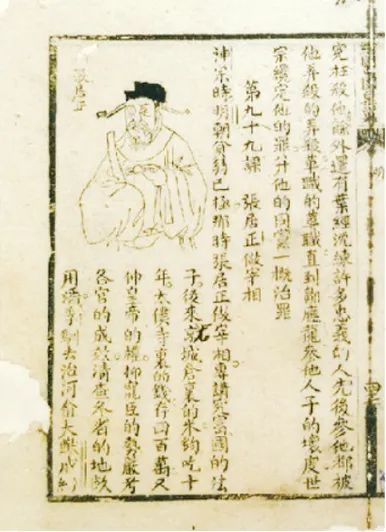 冤枉殺他餘外還有葉經沈鍊許多忠義的人先後參他都被
他弄殺的弄殺革職的革職直到鄒應龍參他人子的壞處世
宗纔定他的罪幷他的同黨一概治罪
第九十九課　張居正做宰相
神宗時明朝貧弱已極那時張居正做宰相專講究富國的法
子後來京城倉裏的米夠吃十
年太僕寺裏的錢存四百萬又
伸皇帝的權抑寵臣的勢嚴考
各官的成績清查各省的地畝
用潘季馴去治河會大興水
張居正